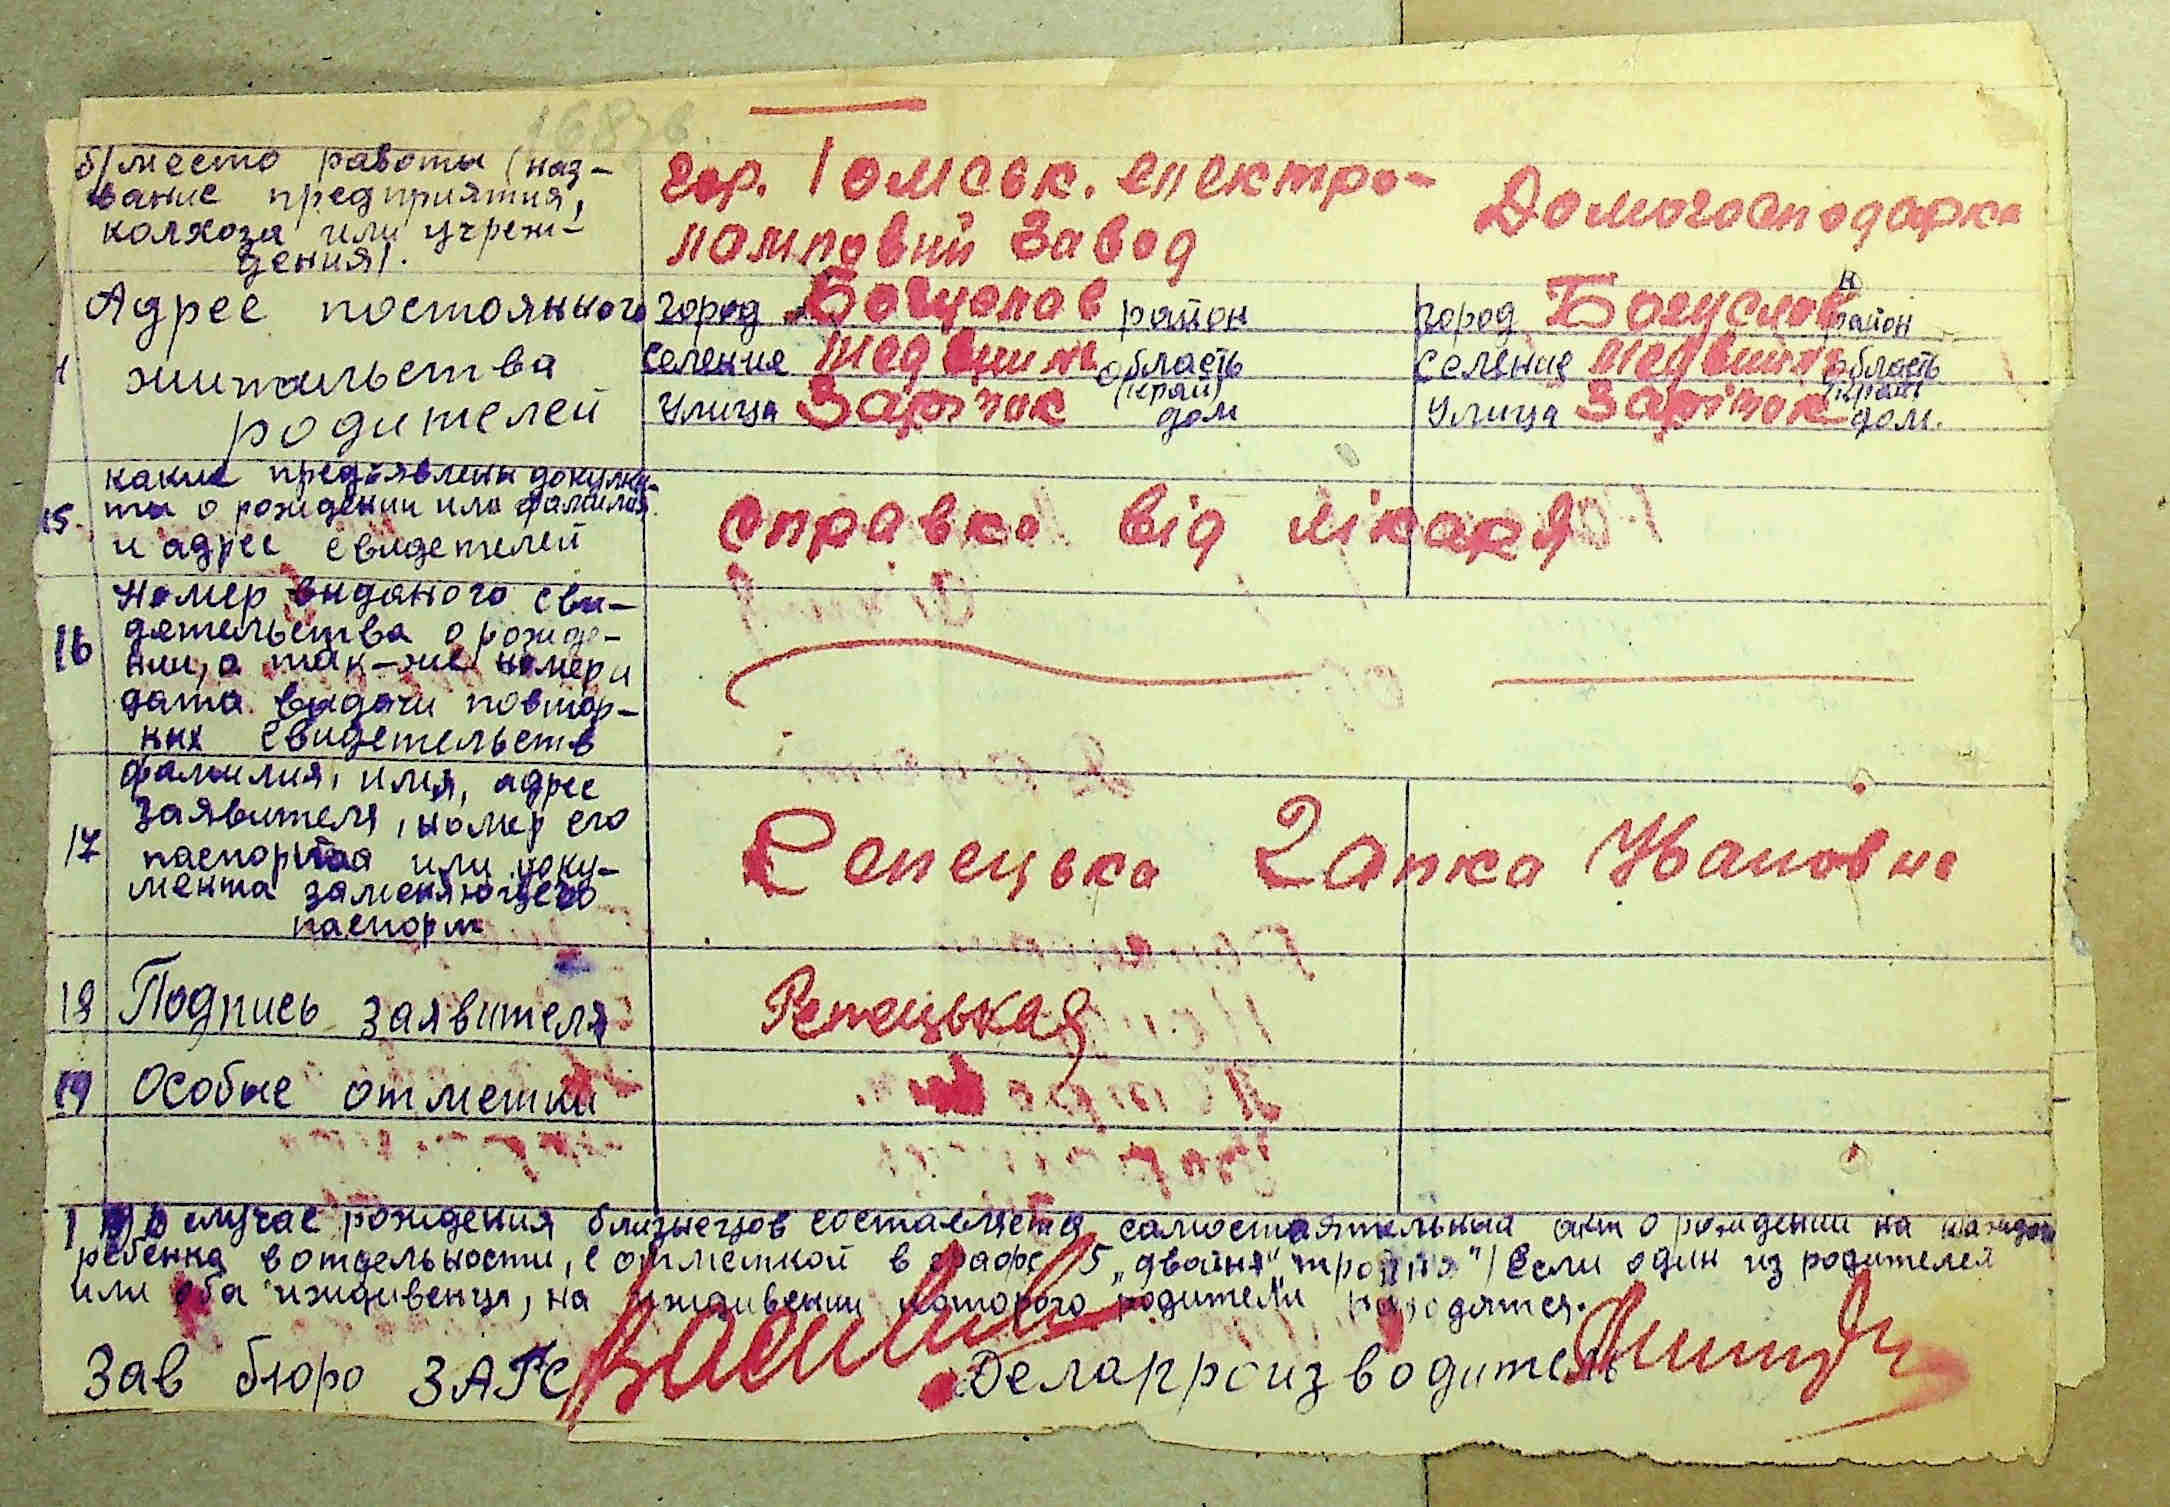 б/ место работы (наз-
вание предприятия,
колхоза или учреж-
дения).
гор. Томськ. електро-
ламповий завод
Домогосподарка
Адрес постоянного
жительства
родителей
город Богуслав район
селение Медвин область
(край)
улица Зарічок дом
город Богуслав район
селение Медвин область
(край)
улица Зарічок дом.
15. какие предъявлены докумен-
ты о рождении или фамилия
и адрес свидетелей
справка від лікаря
16 Номер выданого сви-
детельства о рожде-
нии, а так-же номер и
дата выдачи повтор-
ных свидетельств
17 фамилия, имя, адрес
заявителя, номер его
паспорта или доку-
мента заменяющего
паспорт
Репецька Гапка Ивановна
18 Подпись заявителя
Репецькая
19 Особые отметки
1 В случае рождения близнецов составляется самостоятельный акт о рождении на каждого
ребенка в отдельности, с отметкой в графе 5 „двойня" тройня"/ Если один из родителей
или оба иждивенцы, на иждивении которого родители находятся.
Зав бюро ЗАГС
Делапроизводитель